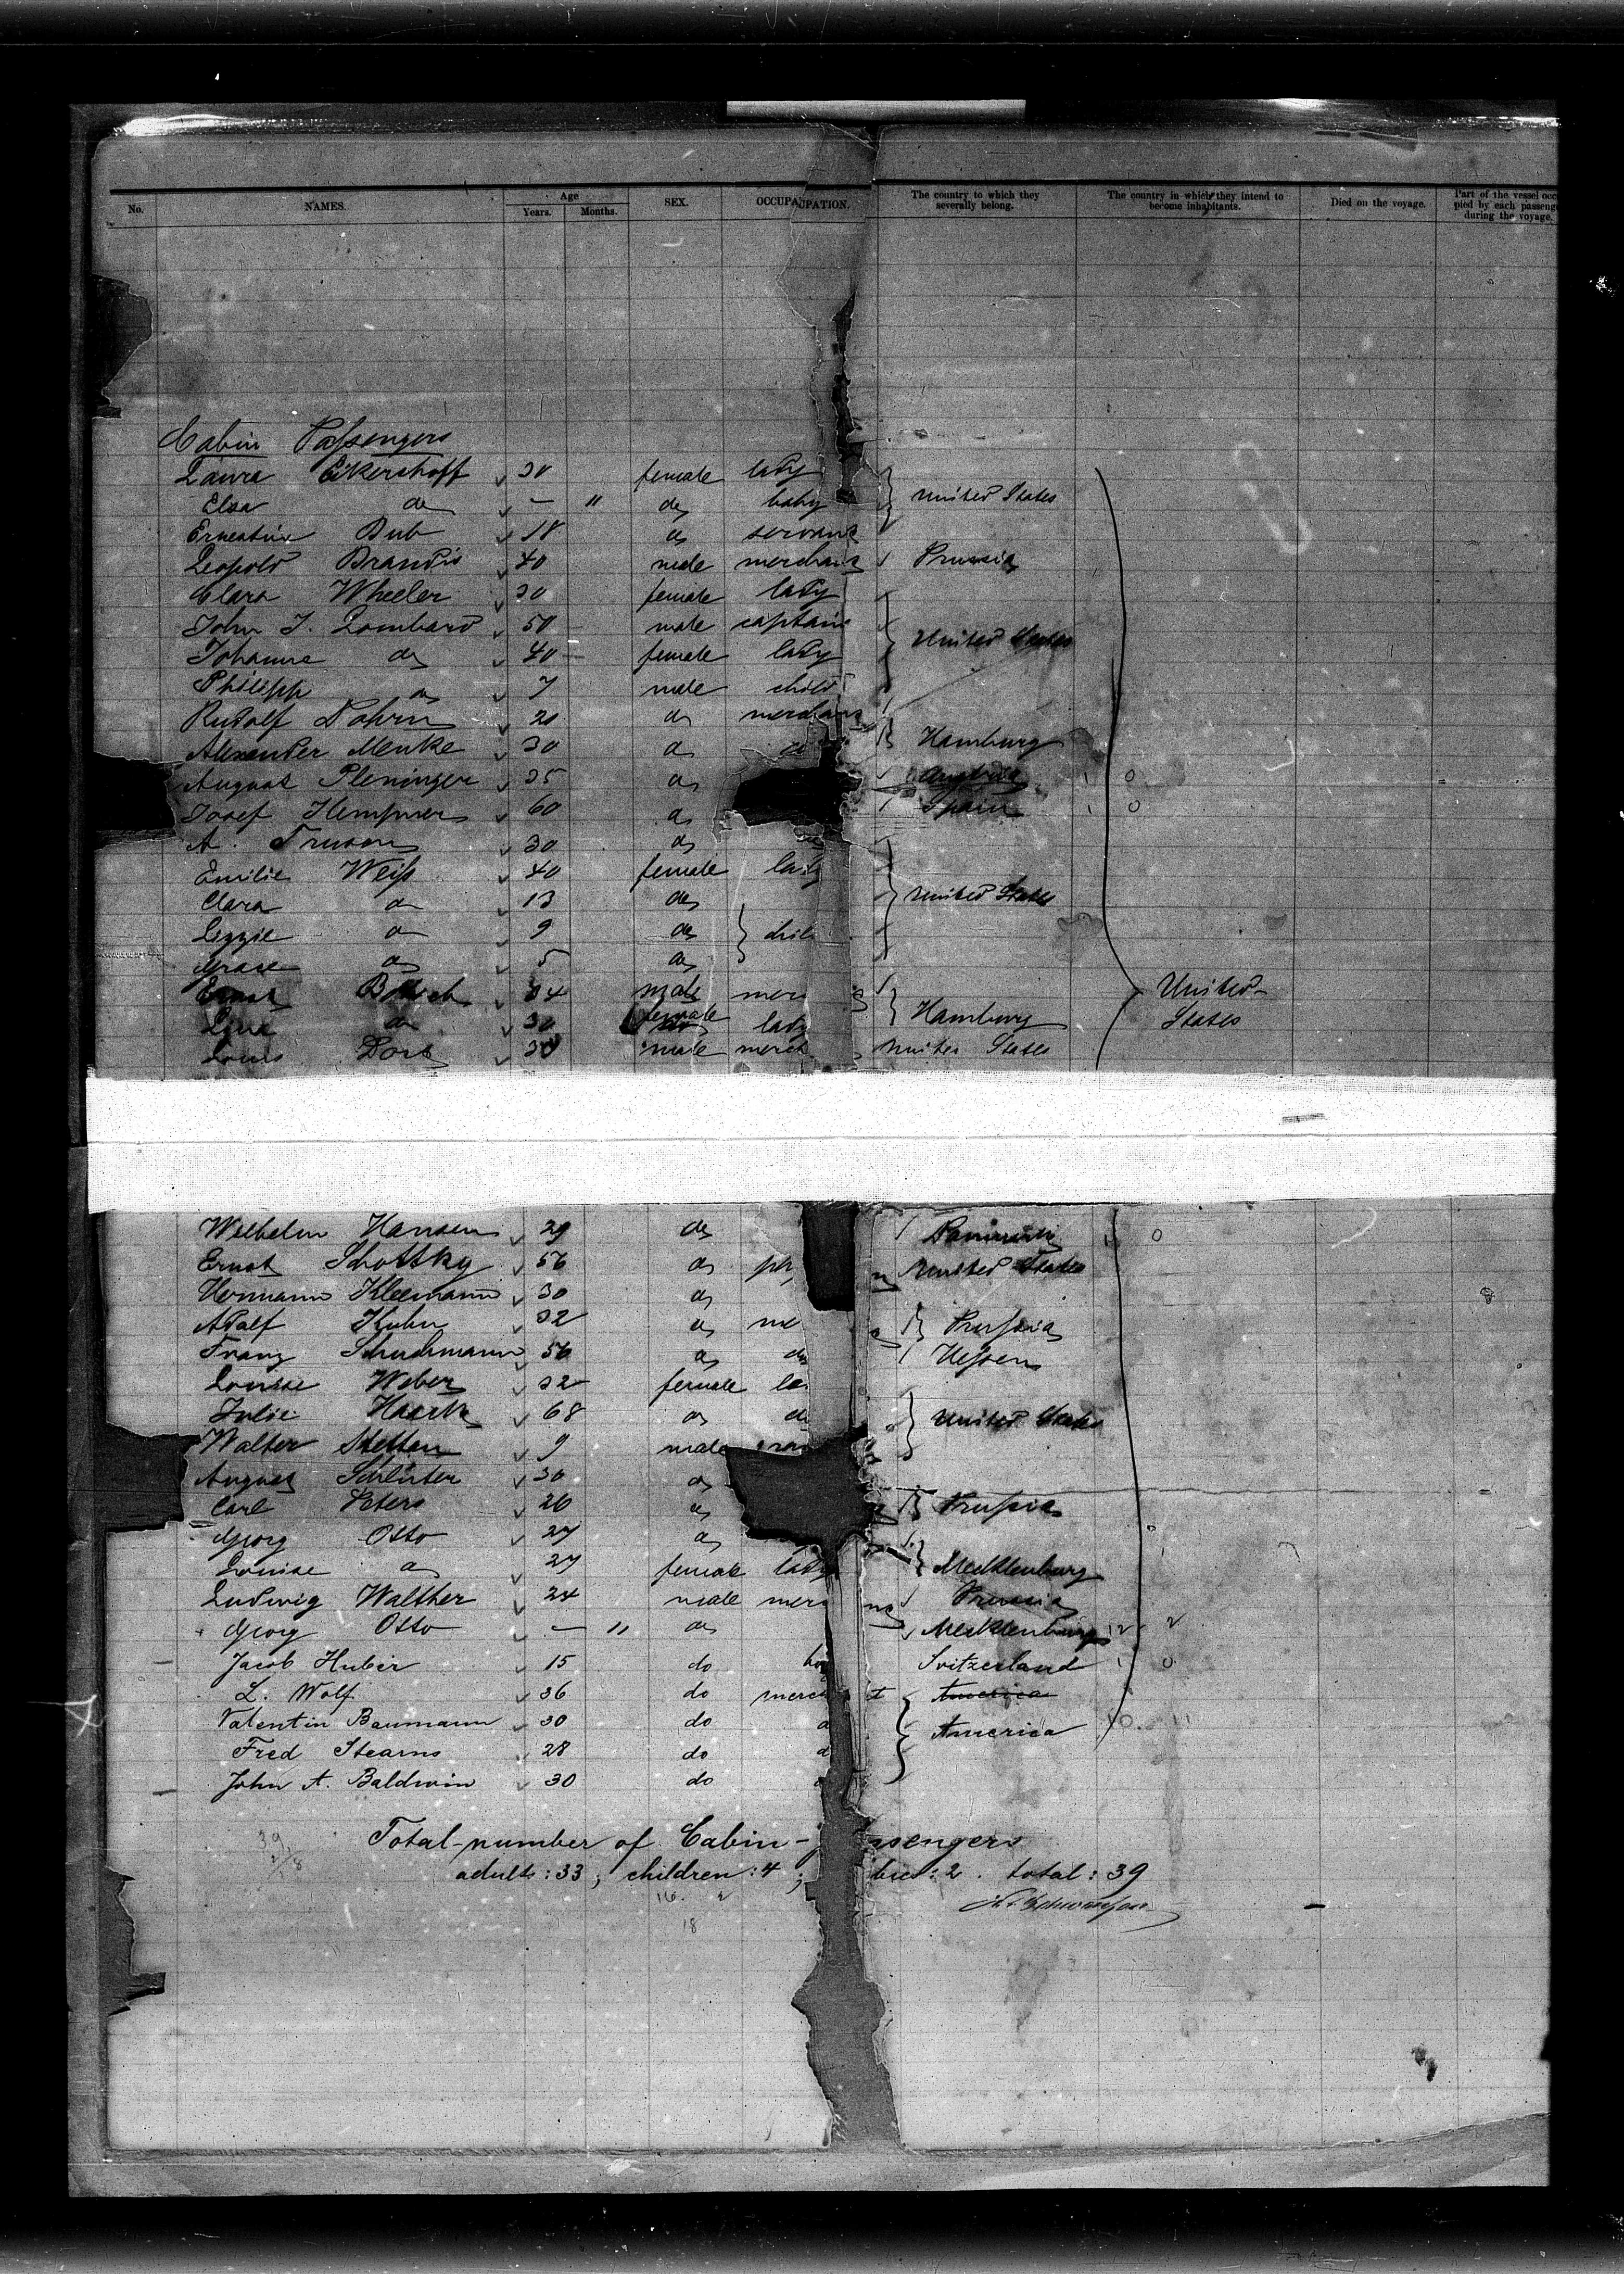 No. NAMES. Age Years. Months. SEX. OCCUPATION. The country to which they severally belong. The country in which they intend to become inhabitants. Died on the voyage. Part of the vessel occupied by each passenger during the voyage.
Cabin Passengers
Laura Eikershoff 30 female lady
Elsa do — " do baby United States
Ernestine Dub 18 do servant
Leopold Brandis 40 male merchant Prussia
Clara Wheeler 30 female lady
John J. Lombard 50 male captain United States
Johanna do 40 — female lady
Philipp do 7 male child
Rudolf Dohrn 21 do merchant
Alexander Menke 30 do do Hamburg
August Pleninger 35 do 0
Josef Kempner 60 do Spain 0
A. Truson 30 do
Emilie Weiss 40 female lady
Clara do 13 do United States
Lizzie do 9 do chil
Grace do 5 do
Ernst 34 male mer United States
Lina do 30 female lady Hamburg
Louis 30 male merch United States
Wilhelm Hansen 29 do 0
Ernst Schottky 56 do ph United States
Hermann Kleemann 30 do
Adolf Kuhn 32 do me Prussia
Franz Schuchmann 56 do do Hessen
Louise Weber 32 female la
Julie Haack 68 do do United States
Walter Stettan 9 male
August Schlüter 30 do
Carl Peters 26 do Prussia
Georg Otto 27 do
Louise do 27 female lady Mecklenburg
Ludwig Walther 24 male mer Prussia
Georg Otto — " do Mecklenburg 12 2
Jacob Huber 15 do bo Switzerland 1 0
L. Wolf 36 do merch t America
Valentin Baumann 30 do d America 10 11
Fred Stearns 28 do d
John A. Baldwin 30 do
Total-number of Cabin- ssengers
adults: 33; children: 4; total: 39
16. 2
18